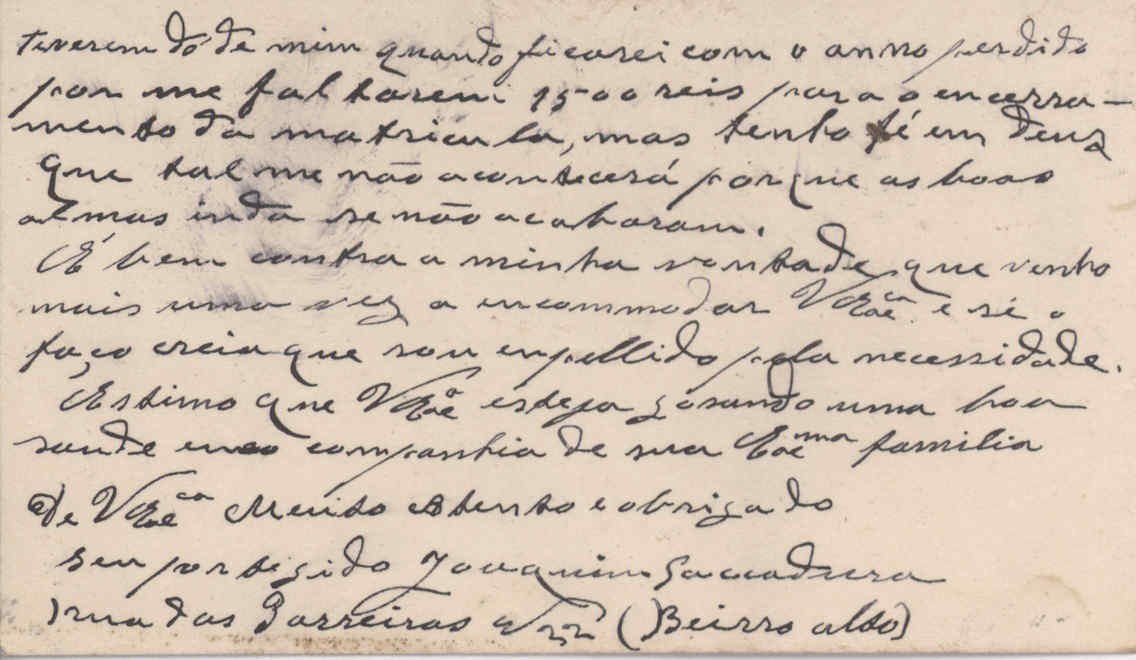 tiverem dó de mim quando ficarei com o anno perdido
por me faltarem 1500 reis para o encerra-
mento da matricula, mas tenho fé em Deus
que tal me não acontecerá porque as boas
almas inda se não acabaram.
É bem contra a minha vontade que venho
mais uma vez a encommodar V Exca e sé o
faço creia que sou enpellido pela necessidade.
Estimo que V Exa esteja gosando uma boa
saude em companhia de sua Exma familia
De V Exca Muito attento e obrigado
seu portegido Joaquim
rua das Barreiras (Beirro alto)